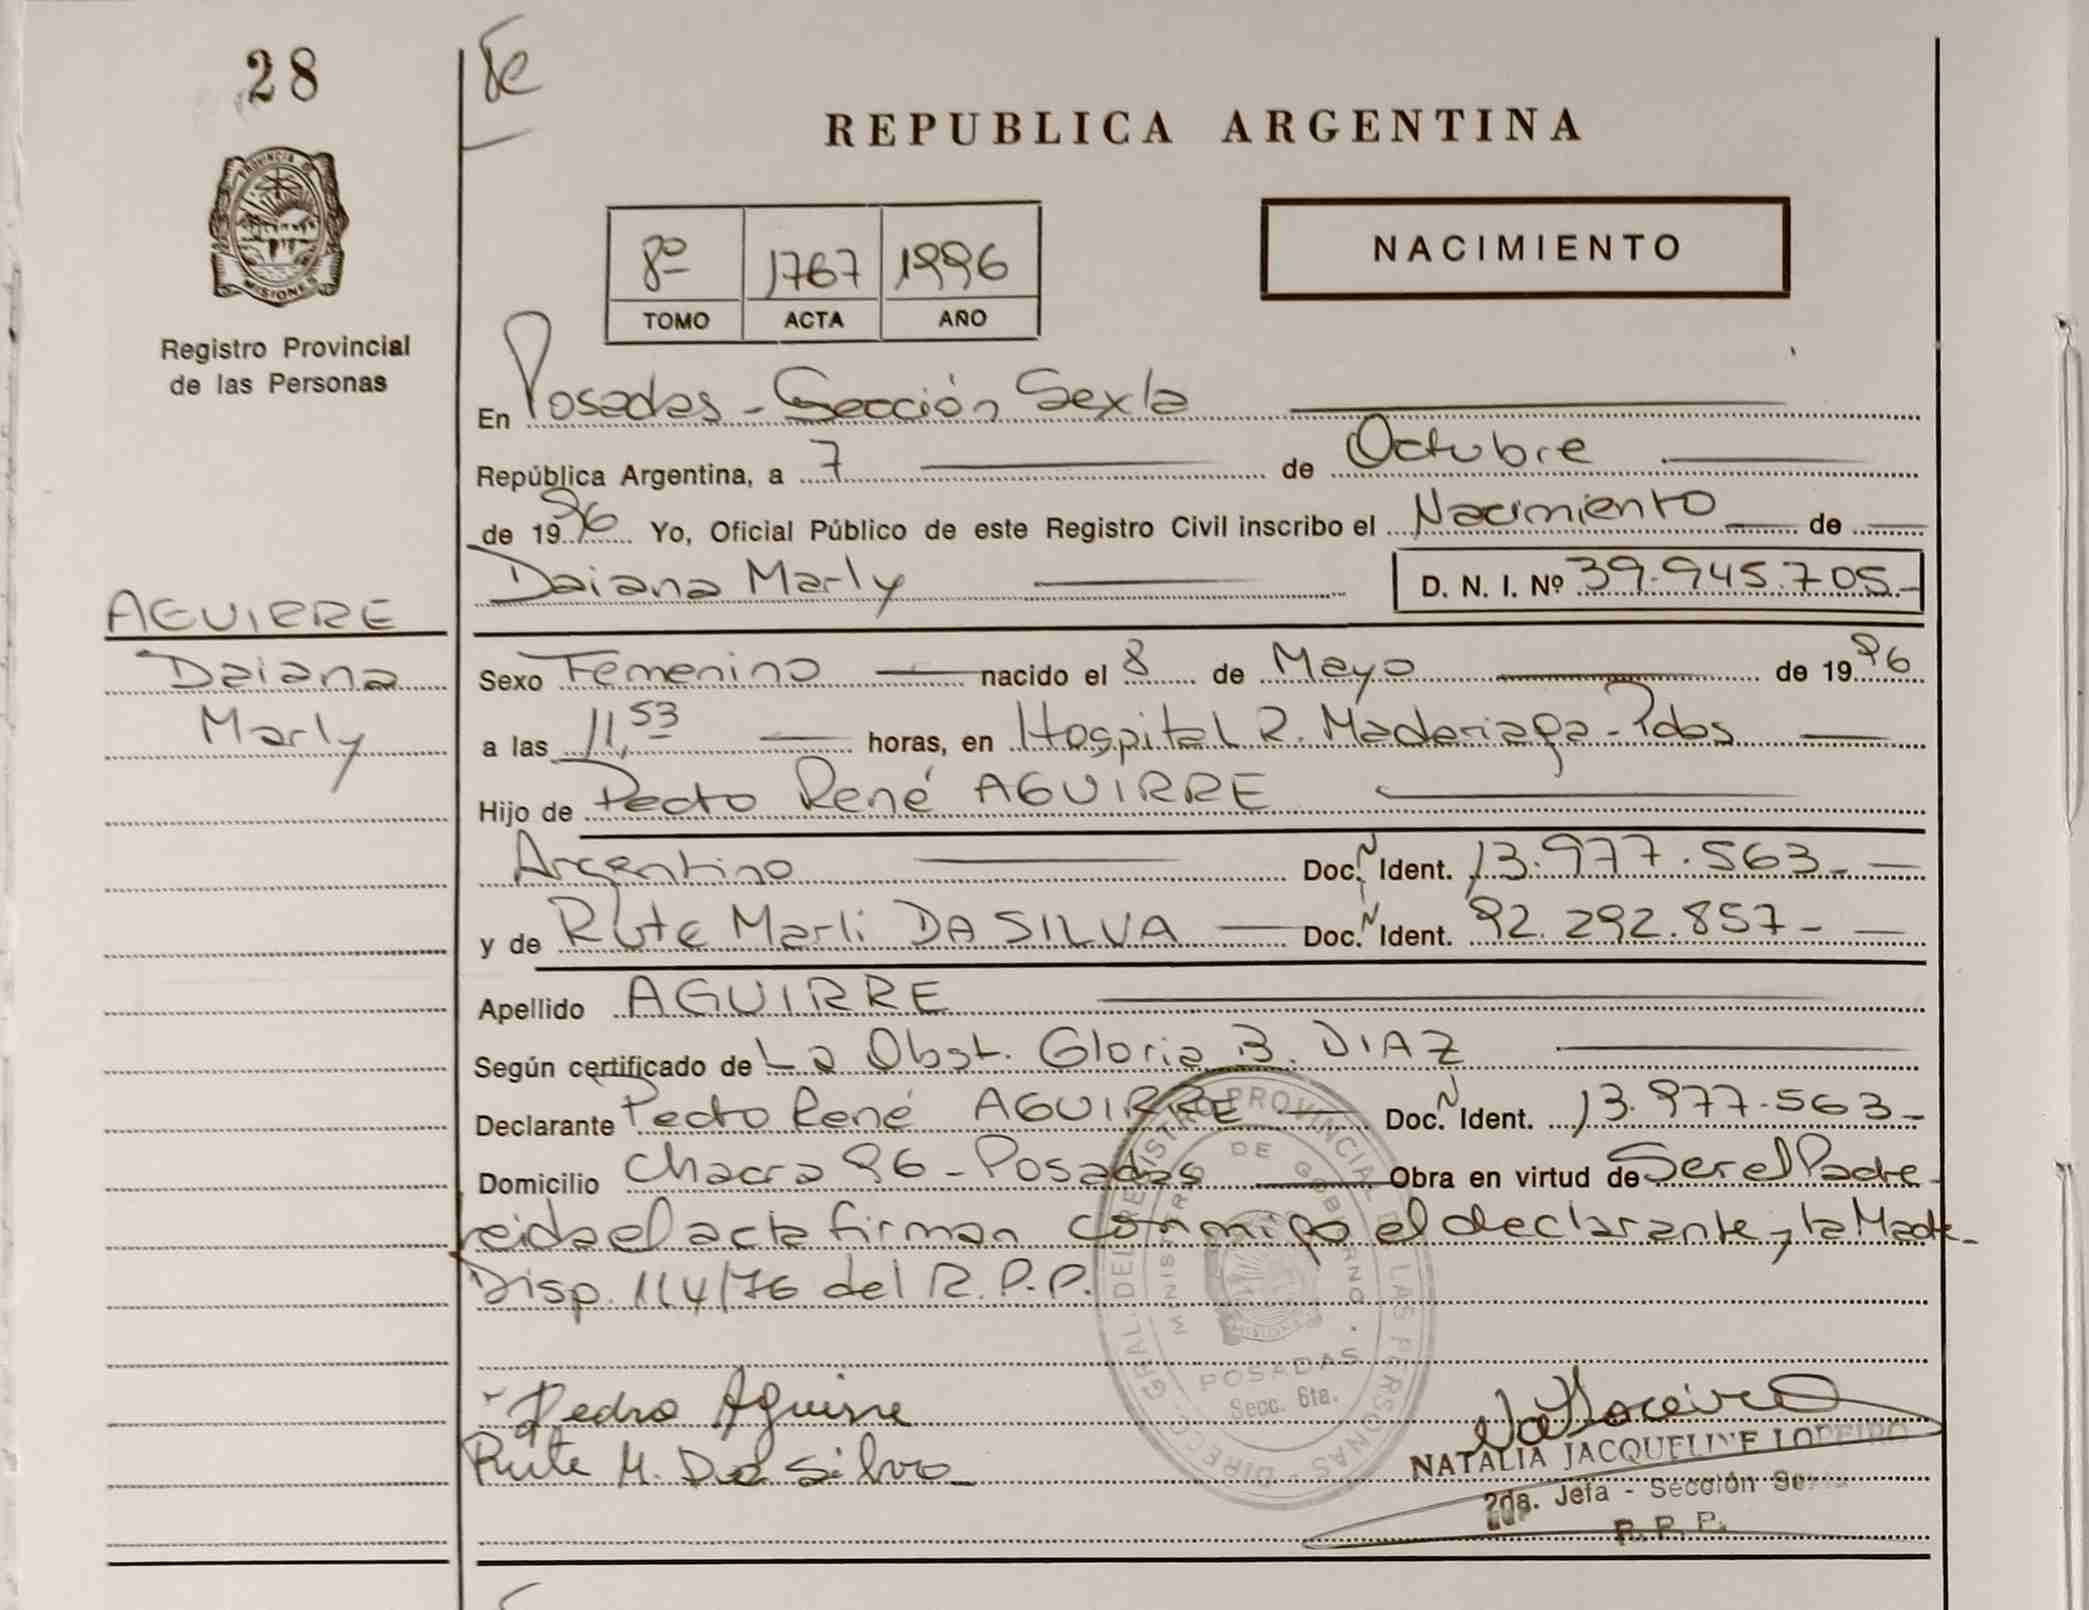 28
REPUBLICA ARGENTINA
PROVINCIA DE
MISIONES
Registro Provincial
de las Personas
8º 1767 1996
TOMO ACTA AÑO
NACIMIENTO
En Posadas - Sección Sexta
República Argentina, a 7 de Octubre
de 1996 Yo, Oficial Público de este Registro Civil inscribo el Nacimiento de
Daiana Marly D. N. I. Nº 39.945.705.-
AGUIRRE
Daiana
Marly
Sexo Femenino nacido el 8 de Mayo de 1996
a las 11,53 horas, en Hospital R. Madariaga - Pdas
Hijo de Pedro René AGUIRRE
Argentino Doc. N Ident. 13.977.563.-
y de Rute Marli DA SILVA Doc. N Ident. 92.292.857-
Apellido AGUIRRE
Según certificado de La Obst. Gloria B. DIAZ
Declarante Pedro René AGUIRRE Doc. N Ident. 13.977.563-
Domicilio Chacra 96 - Posadas Obra en virtud de Ser el Padre
leida el acta firman conmigo el declarante y la Madre-
Disp. 114/76 del R.P.P.
DIREC. GRAL. DEL REGISTRO PROVINCIAL DE LAS PERSONAS
MINISTERIO DE GOBIERNO
MISIONES
POSADAS
Secc. 6ta.
Pedro Aguirre
Rute M. Da Silva
NATALIA JACQUELINE LOPEIRO
2da. Jefa - Sección Sexta
R. P. P.